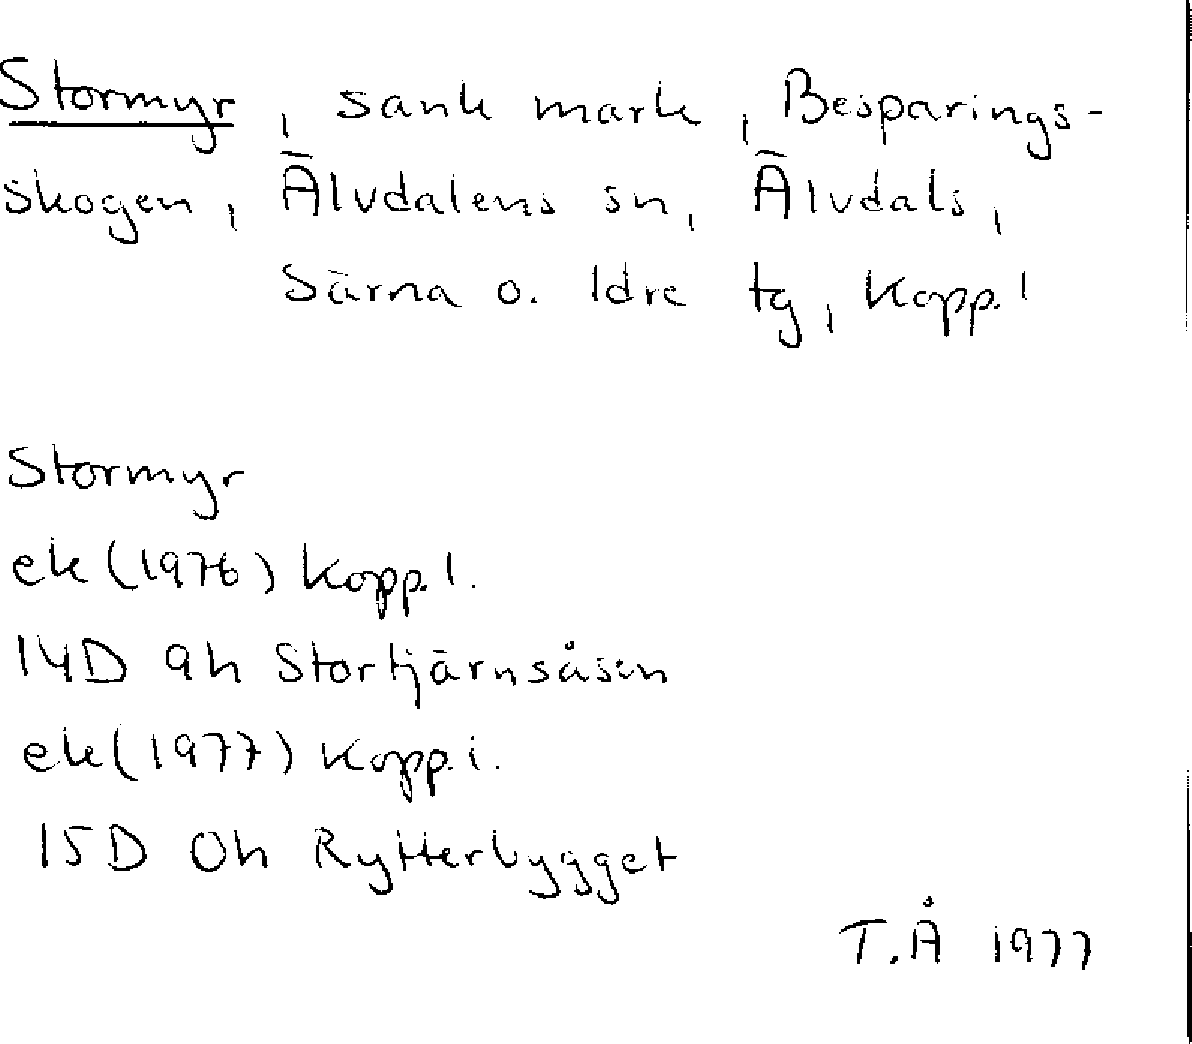 Stormyr, sank mark, Besparings-
skogen, Älvdalens sn, Älvdals,
Särna o. Idre tg, Kopp.l
Stormyr
ek (1976) Kopp.l.
14D 9h Stortjärnsåsen
ek (1977) Kopp.l.
15D 0h Rytterbygget
T.Å 1977